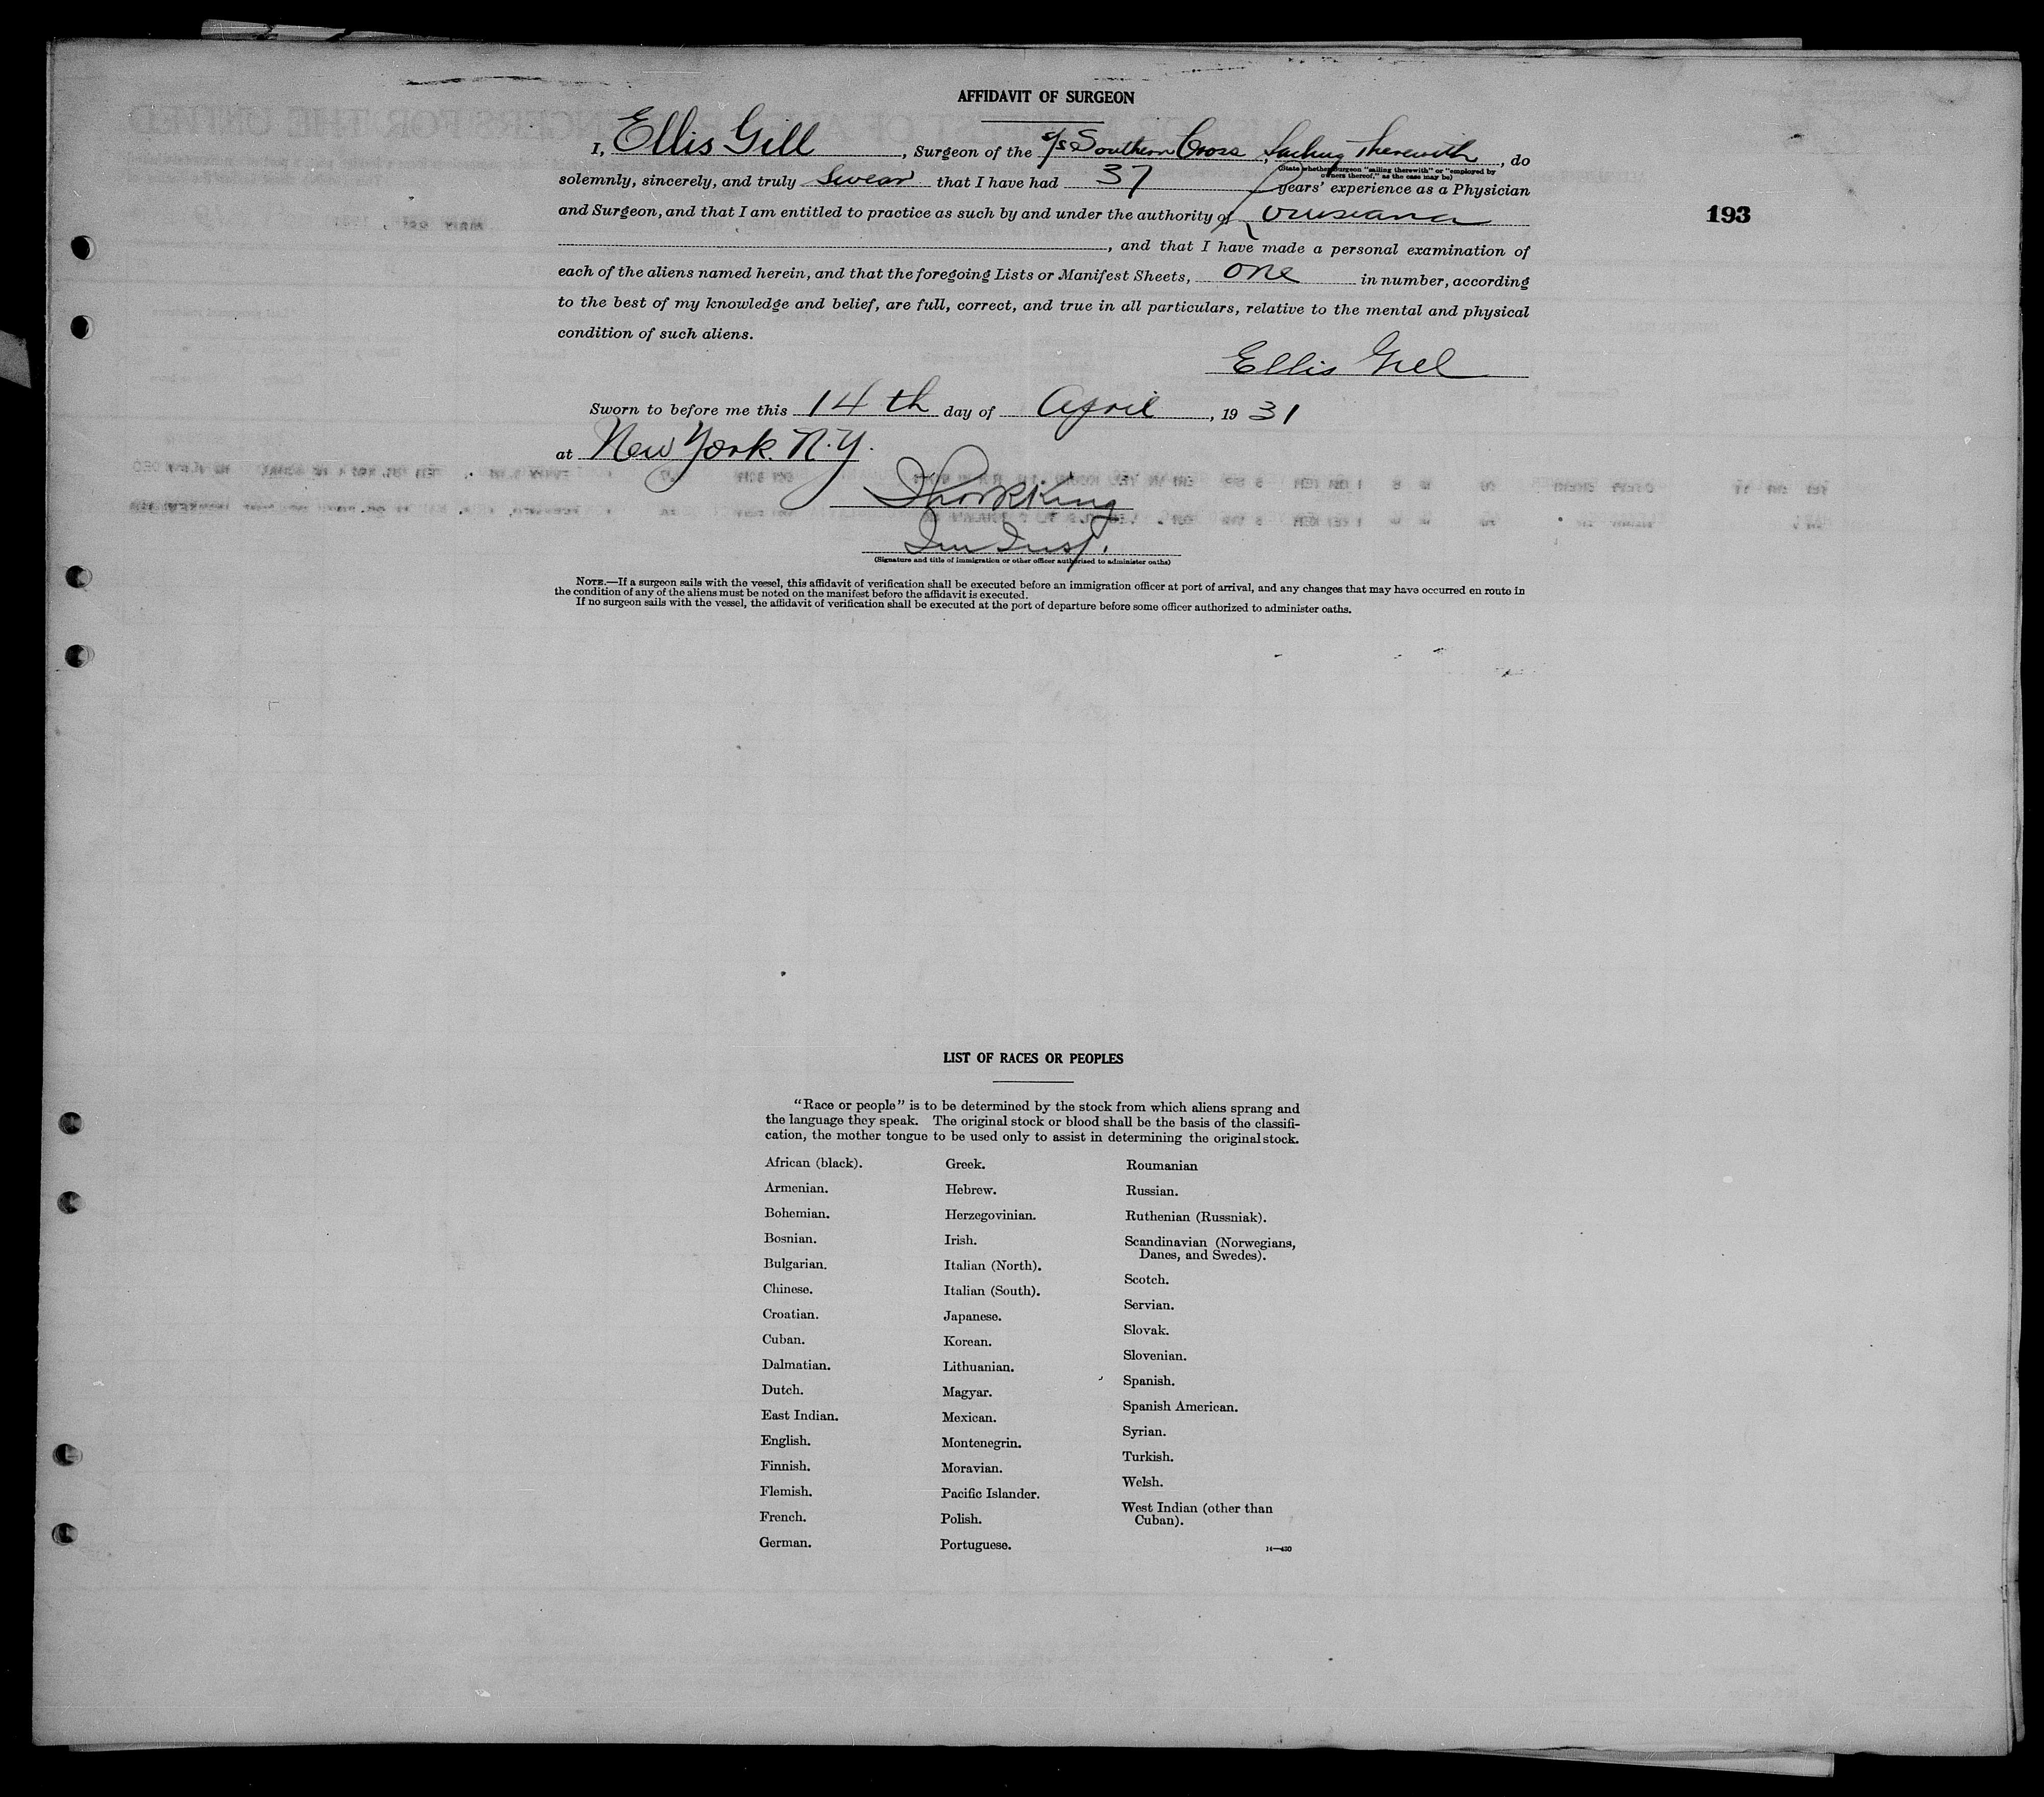 AFFIDAVIT OF SURGEON
I, Ellis Gill, Surgeon of the s/s Southern Cross, Sailing Therewith, do
(State whether surgeon "sailing therewith" or "employed by owners thereof," as the case may be)
solemnly, sincerely, and truly swear that I have had 37 years' experience as a Physician
and Surgeon, and that I am entitled to practice as such by and under the authority of Louisiana
193
, and that I have made a personal examination of
each of the aliens named herein, and that the foregoing Lists or Manifest Sheets, one in number, according
to the best of my knowledge and belief, are full, correct, and true in all particulars, relative to the mental and physical
condition of such aliens.
Ellis Gill
Sworn to before me this 14th day of April, 1931
at New York. N.Y.
King
Im Insp.
(Signature and title of immigration or other officer authorized to administer oaths)
NOTE.—If a surgeon sails with the vessel, this affidavit of verification shall be executed before an immigration officer at port of arrival, and any changes that may have occurred en route in
the condition of any of the aliens must be noted on the manifest before the affidavit is executed.
If no surgeon sails with the vessel, the affidavit of verification shall be executed at the port of departure before some officer authorized to administer oaths.
LIST OF RACES OR PEOPLES
"Race or people" is to be determined by the stock from which aliens sprang and
the language they speak. The original stock or blood shall be the basis of the classifi-
cation, the mother tongue to be used only to assist in determining the original stock.
African (black).
Armenian.
Bohemian.
Bosnian.
Bulgarian.
Chinese.
Croatian.
Cuban.
Dalmatian.
Dutch.
East Indian.
English.
Finnish.
Flemish.
French.
German.
Greek.
Hebrew.
Herzegovinian.
Irish.
Italian (North).
Italian (South).
Japanese.
Korean.
Lithuanian.
Magyar.
Mexican.
Montenegrin.
Moravian.
Pacific Islander.
Polish.
Portuguese.
Roumanian
Russian.
Ruthenian (Russniak).
Scandinavian (Norwegians,
Danes, and Swedes).
Scotch.
Servian.
Slovak.
Slovenian.
Spanish.
Spanish American.
Syrian.
Turkish.
Welsh.
West Indian (other than
Cuban).
14—430